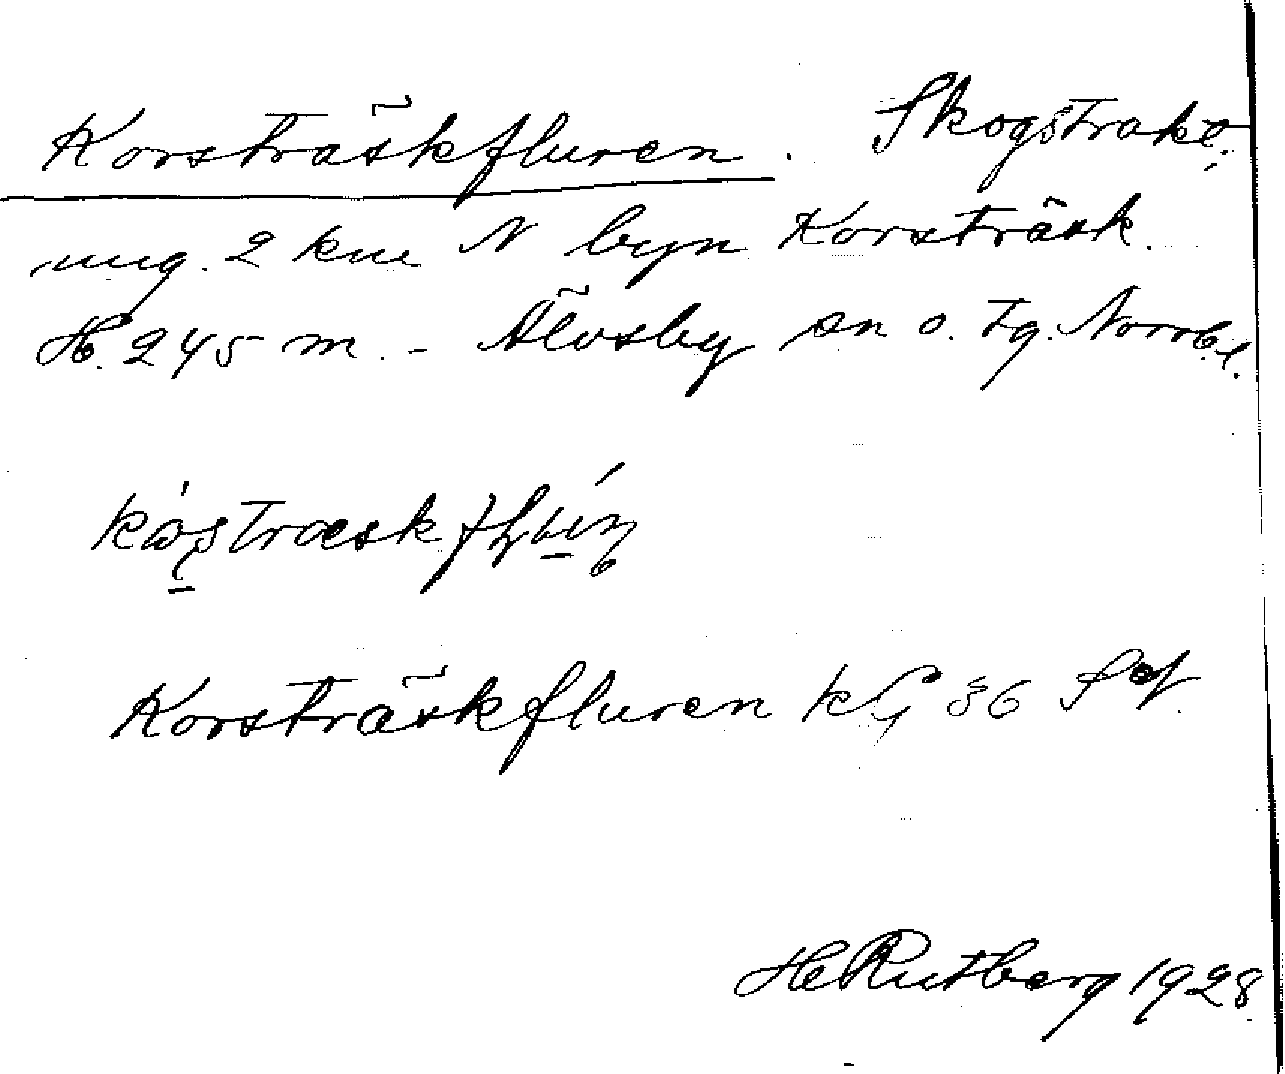 Korsträskfluren. Skogstrakt
ung. 2 km N byn Korsträsk.
H. 245 m. - Älvsby sn o. tg. Norrb. l.
Korsträskfluren KG 86
H Rutberg 1928